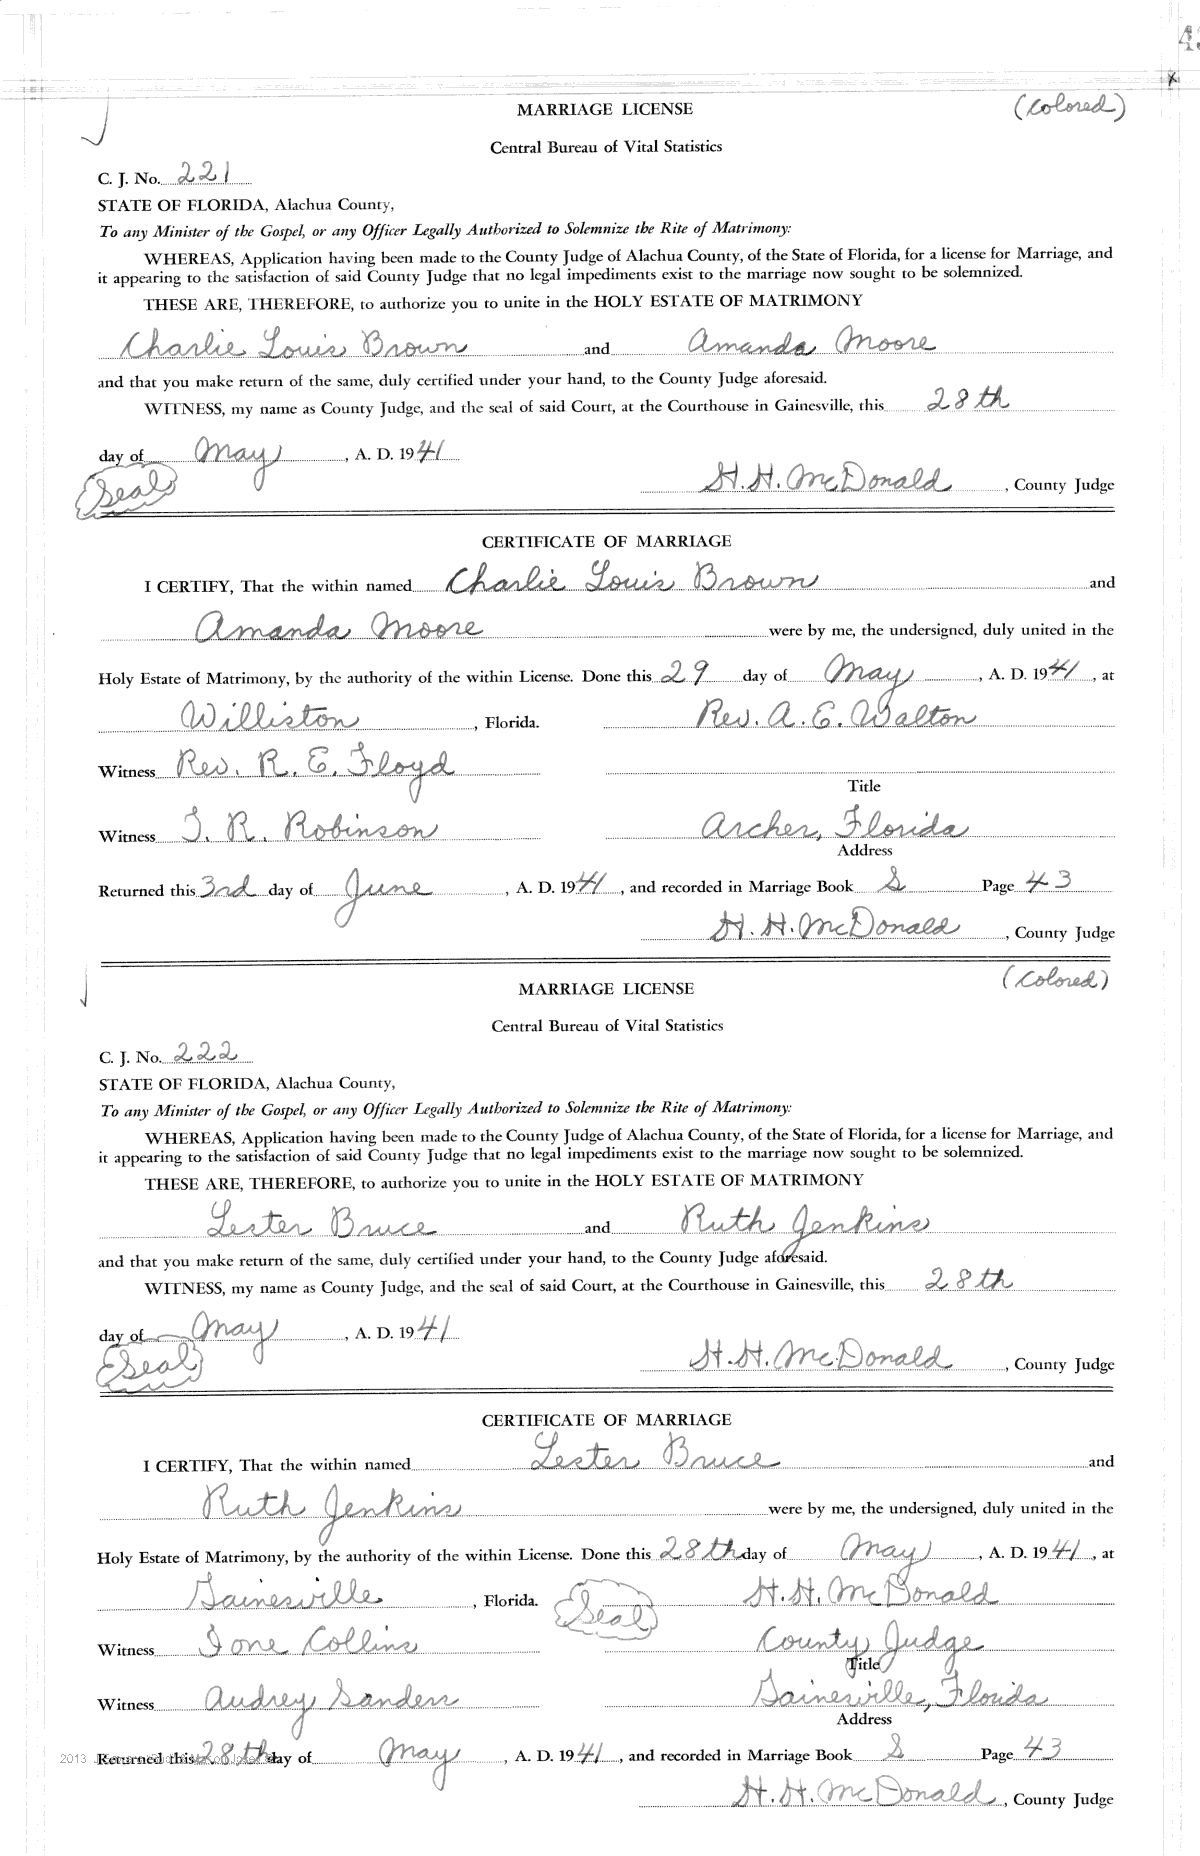 43
x
MARRIAGE LICENSE (Colored)
Central Bureau of Vital Statistics
C. J. No. 221
STATE OF FLORIDA, Alachua County,
To any Minister of the Gospel, or any Officer Legally Authorized to Solemnize the Rite of Matrimony:
WHEREAS, Application having been made to the County Judge of Alachua County, of the State of Florida, for a license for Marriage, and
it appearing to the satisfaction of said County Judge that no legal impediments exist to the marriage now sought to be solemnized.
THESE ARE, THEREFORE, to authorize you to unite in the HOLY ESTATE OF MATRIMONY
Charlie Louis Brown and Amanda Moore
and that you make return of the same, duly certified under your hand, to the County Judge aforesaid.
WITNESS, my name as County Judge, and the seal of said Court, at the Courthouse in Gainesville, this 28th
day of May, A. D. 1941
Seal H. H. McDonald, County Judge
CERTIFICATE OF MARRIAGE
I CERTIFY, That the within named Charlie Louis Brown and
Amanda Moore were by me, the undersigned, duly united in the
Holy Estate of Matrimony, by the authority of the within License. Done this 29 day of May, A. D. 1941, at
Williston, Florida. Rev. A. E. Walton
Witness Rev. R. E. Floyd
Title
Witness T. R. Robinson Archer, Florida
Address
Returned this 3rd day of June, A. D. 1941, and recorded in Marriage Book S Page 43
H. H. McDonald, County Judge
MARRIAGE LICENSE (Colored)
Central Bureau of Vital Statistics
C. J. No. 222
STATE OF FLORIDA, Alachua County,
To any Minister of the Gospel, or any Officer Legally Authorized to Solemnize the Rite of Matrimony:
WHEREAS, Application having been made to the County Judge of Alachua County, of the State of Florida, for a license for Marriage, and
it appearing to the satisfaction of said County Judge that no legal impediments exist to the marriage now sought to be solemnized.
THESE ARE, THEREFORE, to authorize you to unite in the HOLY ESTATE OF MATRIMONY
Lester Bruce and Ruth Jenkins
and that you make return of the same, duly certified under your hand, to the County Judge aforesaid.
WITNESS, my name as County Judge, and the seal of said Court, at the Courthouse in Gainesville, this 28th
day of May, A. D. 1941
Seal H. H. McDonald, County Judge
CERTIFICATE OF MARRIAGE
I CERTIFY, That the within named Lester Bruce and
Ruth Jenkins were by me, the undersigned, duly united in the
Holy Estate of Matrimony, by the authority of the within License. Done this 28th day of May, A. D. 1941, at
Gainesville, Florida. Seal H. H. McDonald
Witness Ione Collins County Judge
Title
Witness Audrey Sanders Gainesville, Florida
Address
2013
Returned this 28th day of May, A. D. 1941, and recorded in Marriage Book S Page 43
H. H. McDonald, County Judge